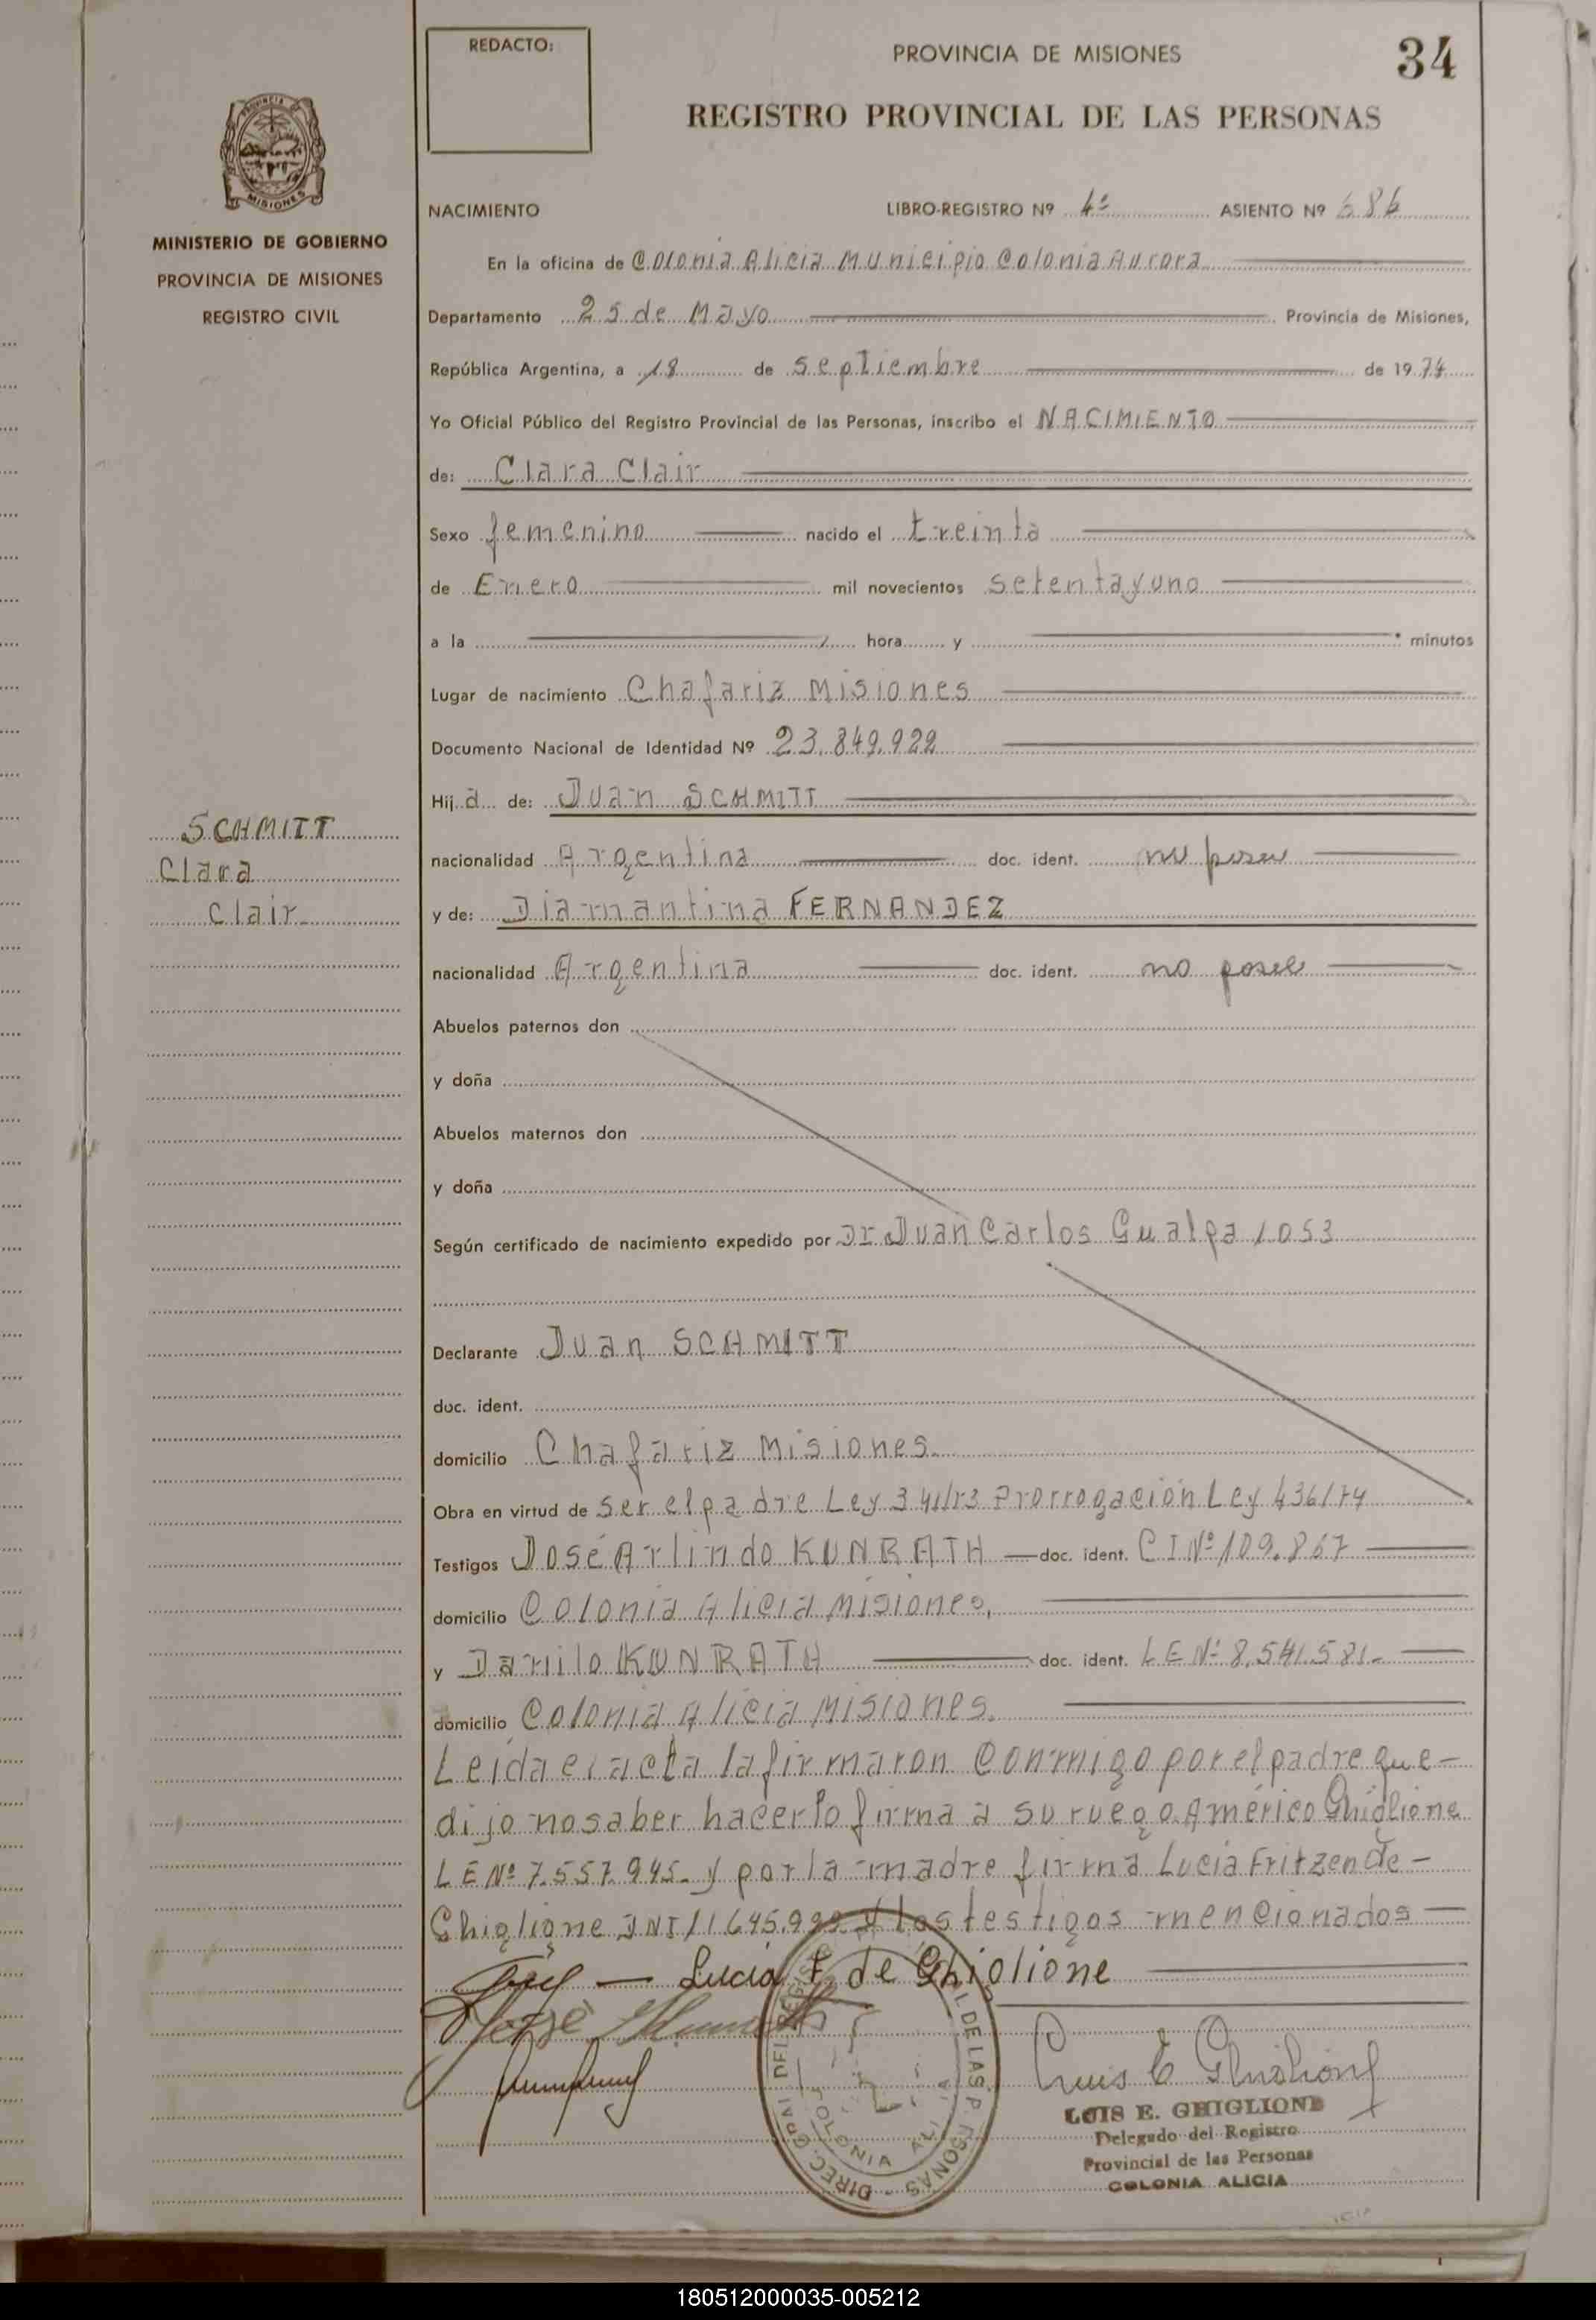 REDACTO:
PROVINCIA DE MISIONES
34
REGISTRO PROVINCIAL DE LAS PERSONAS
PROVINCIA DE
MISIONES
MINISTERIO DE GOBIERNO
PROVINCIA DE MISIONES
REGISTRO CIVIL
NACIMIENTO LIBRO-REGISTRO Nº 4º ASIENTO Nº 686
En la oficina de Colonia Alicia Municipio Colonia Aurora
Departamento 25 de Mayo Provincia de Misiones,
República Argentina, a 18 de Septiembre de 1974
Yo Oficial Público del Registro Provincial de las Personas, inscribo el NACIMIENTO
de: Clara Clair
Sexo femenino nacido el treinta
de Enero mil novecientos setentayuno
a la hora y minutos
Lugar de nacimiento Chafariz Misiones
Documento Nacional de Identidad Nº 23.849.922
Hij a de: Juan SCHMITT
SCHMITT
Clara
Clair
nacionalidad Argentina doc. ident. no posee
y de: Diamantina FERNANDEZ
nacionalidad Argentina doc. ident. no posee
Abuelos paternos don
y doña
Abuelos maternos don
y doña
Según certificado de nacimiento expedido por Dr Juan Carlos Gualpa 1053
Declarante Juan SCHMITT
doc. ident.
domicilio Chafariz Misiones.
Obra en virtud de ser el padre Ley 341/73 Prorrogación Ley 436/74
Testigos José Arlindo KUNRATH doc. ident. CI Nº 109.867
domicilio Colonia Alicia Misiones.
y Danilo KUNRATH doc. ident. LE Nº 8.541.581.
domicilio Colonia Alicia Misiones.
Leída el acta la firmaron conmigo por el padre que
dijo no saber hacerlo firma a su ruego Américo Ghiglione
LE Nº 7.557.945. y por la madre firma Lucía Fritzen de
Ghiglione DNI 11.645.999 y los testigos mencionados
Lucía F de Ghiglione
Luis E Ghiglione
LUIS E. GHIGLIONE
Delegado del Registro
Provincial de las Personas
COLONIA ALICIA
180512000035-005212